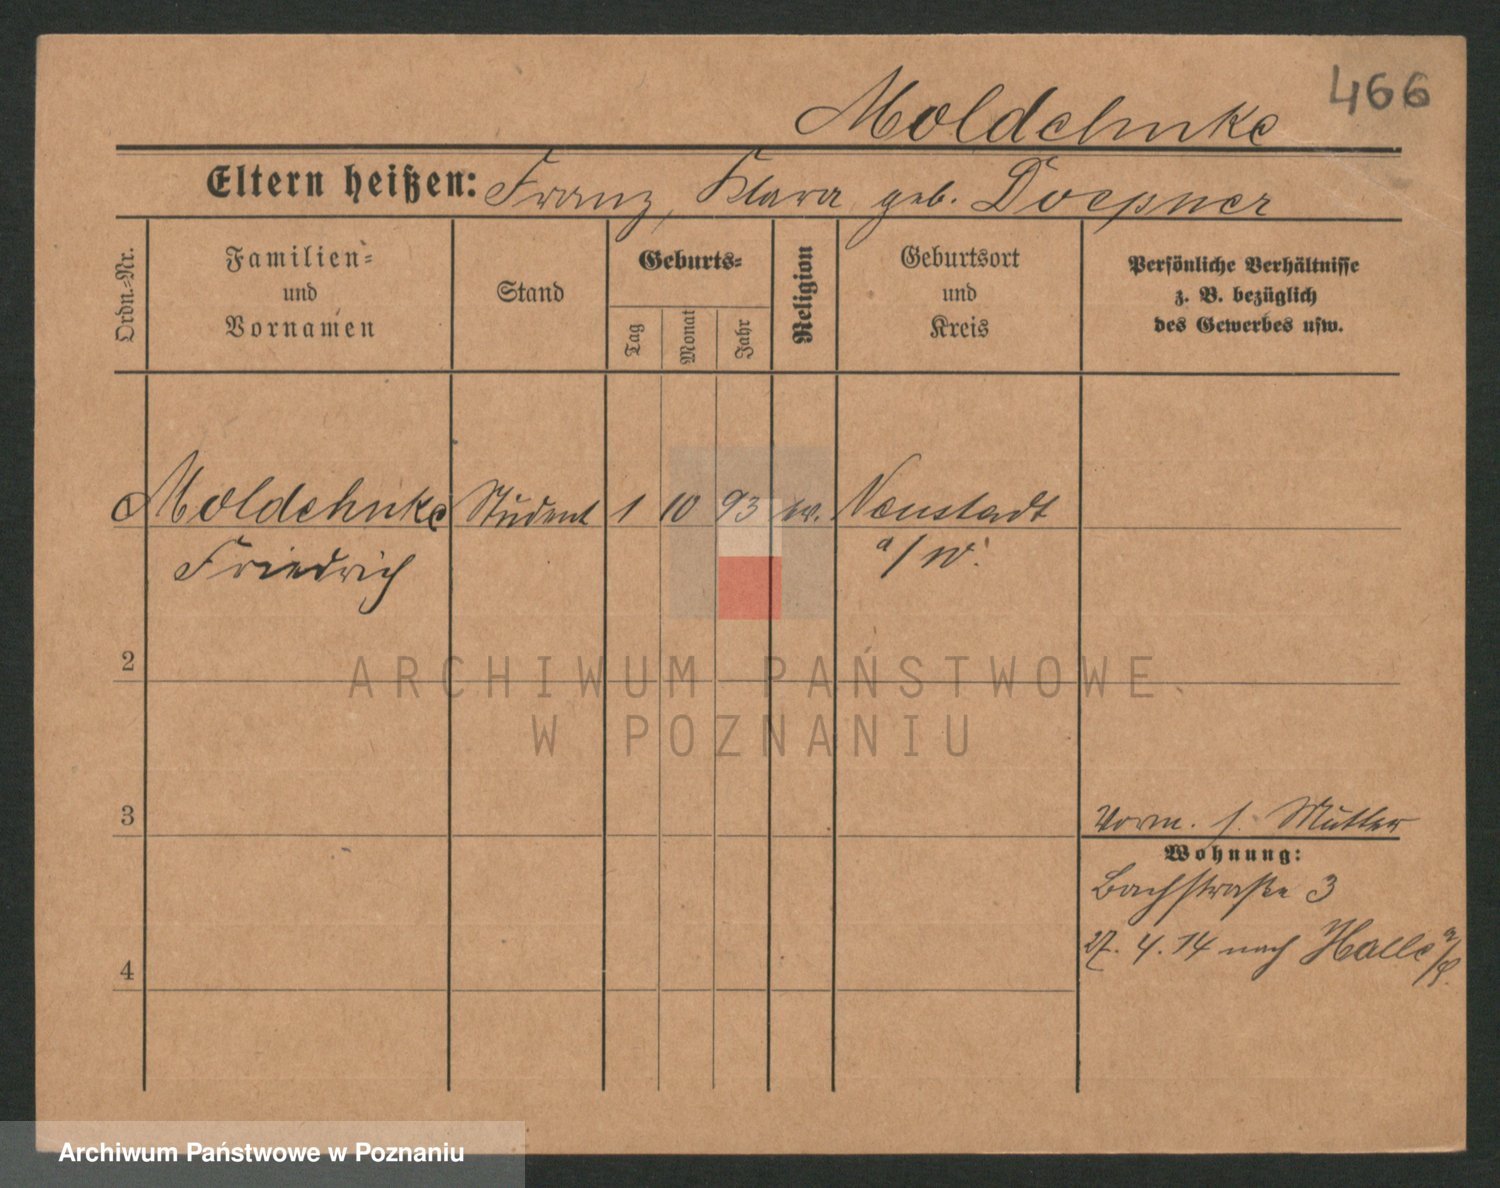 466
Moldehnke
Eltern heißen: Franz, Klara geb. Doepner
Ordn.=Nr.
Familien=
und
Vornamen
Stand
Geburts=
Tag
Monat
Jahr
Religion
Geburtsort
und
Kreis
Persönliche Verhältnisse
z. B. bezüglich
des Gewerbes usw.
Moldehnke Student 1 10 93 ev. Neustadt
Friedrich a/W.
2
ARCHIWUM PAŃSTWOWE
W POZNANIU
3
Vorm. s. Mutter
Wohnung:
Bachstraße 3
27. 4. 14 nach Halle a/S.
4
Archiwum Państwowe w Poznaniu